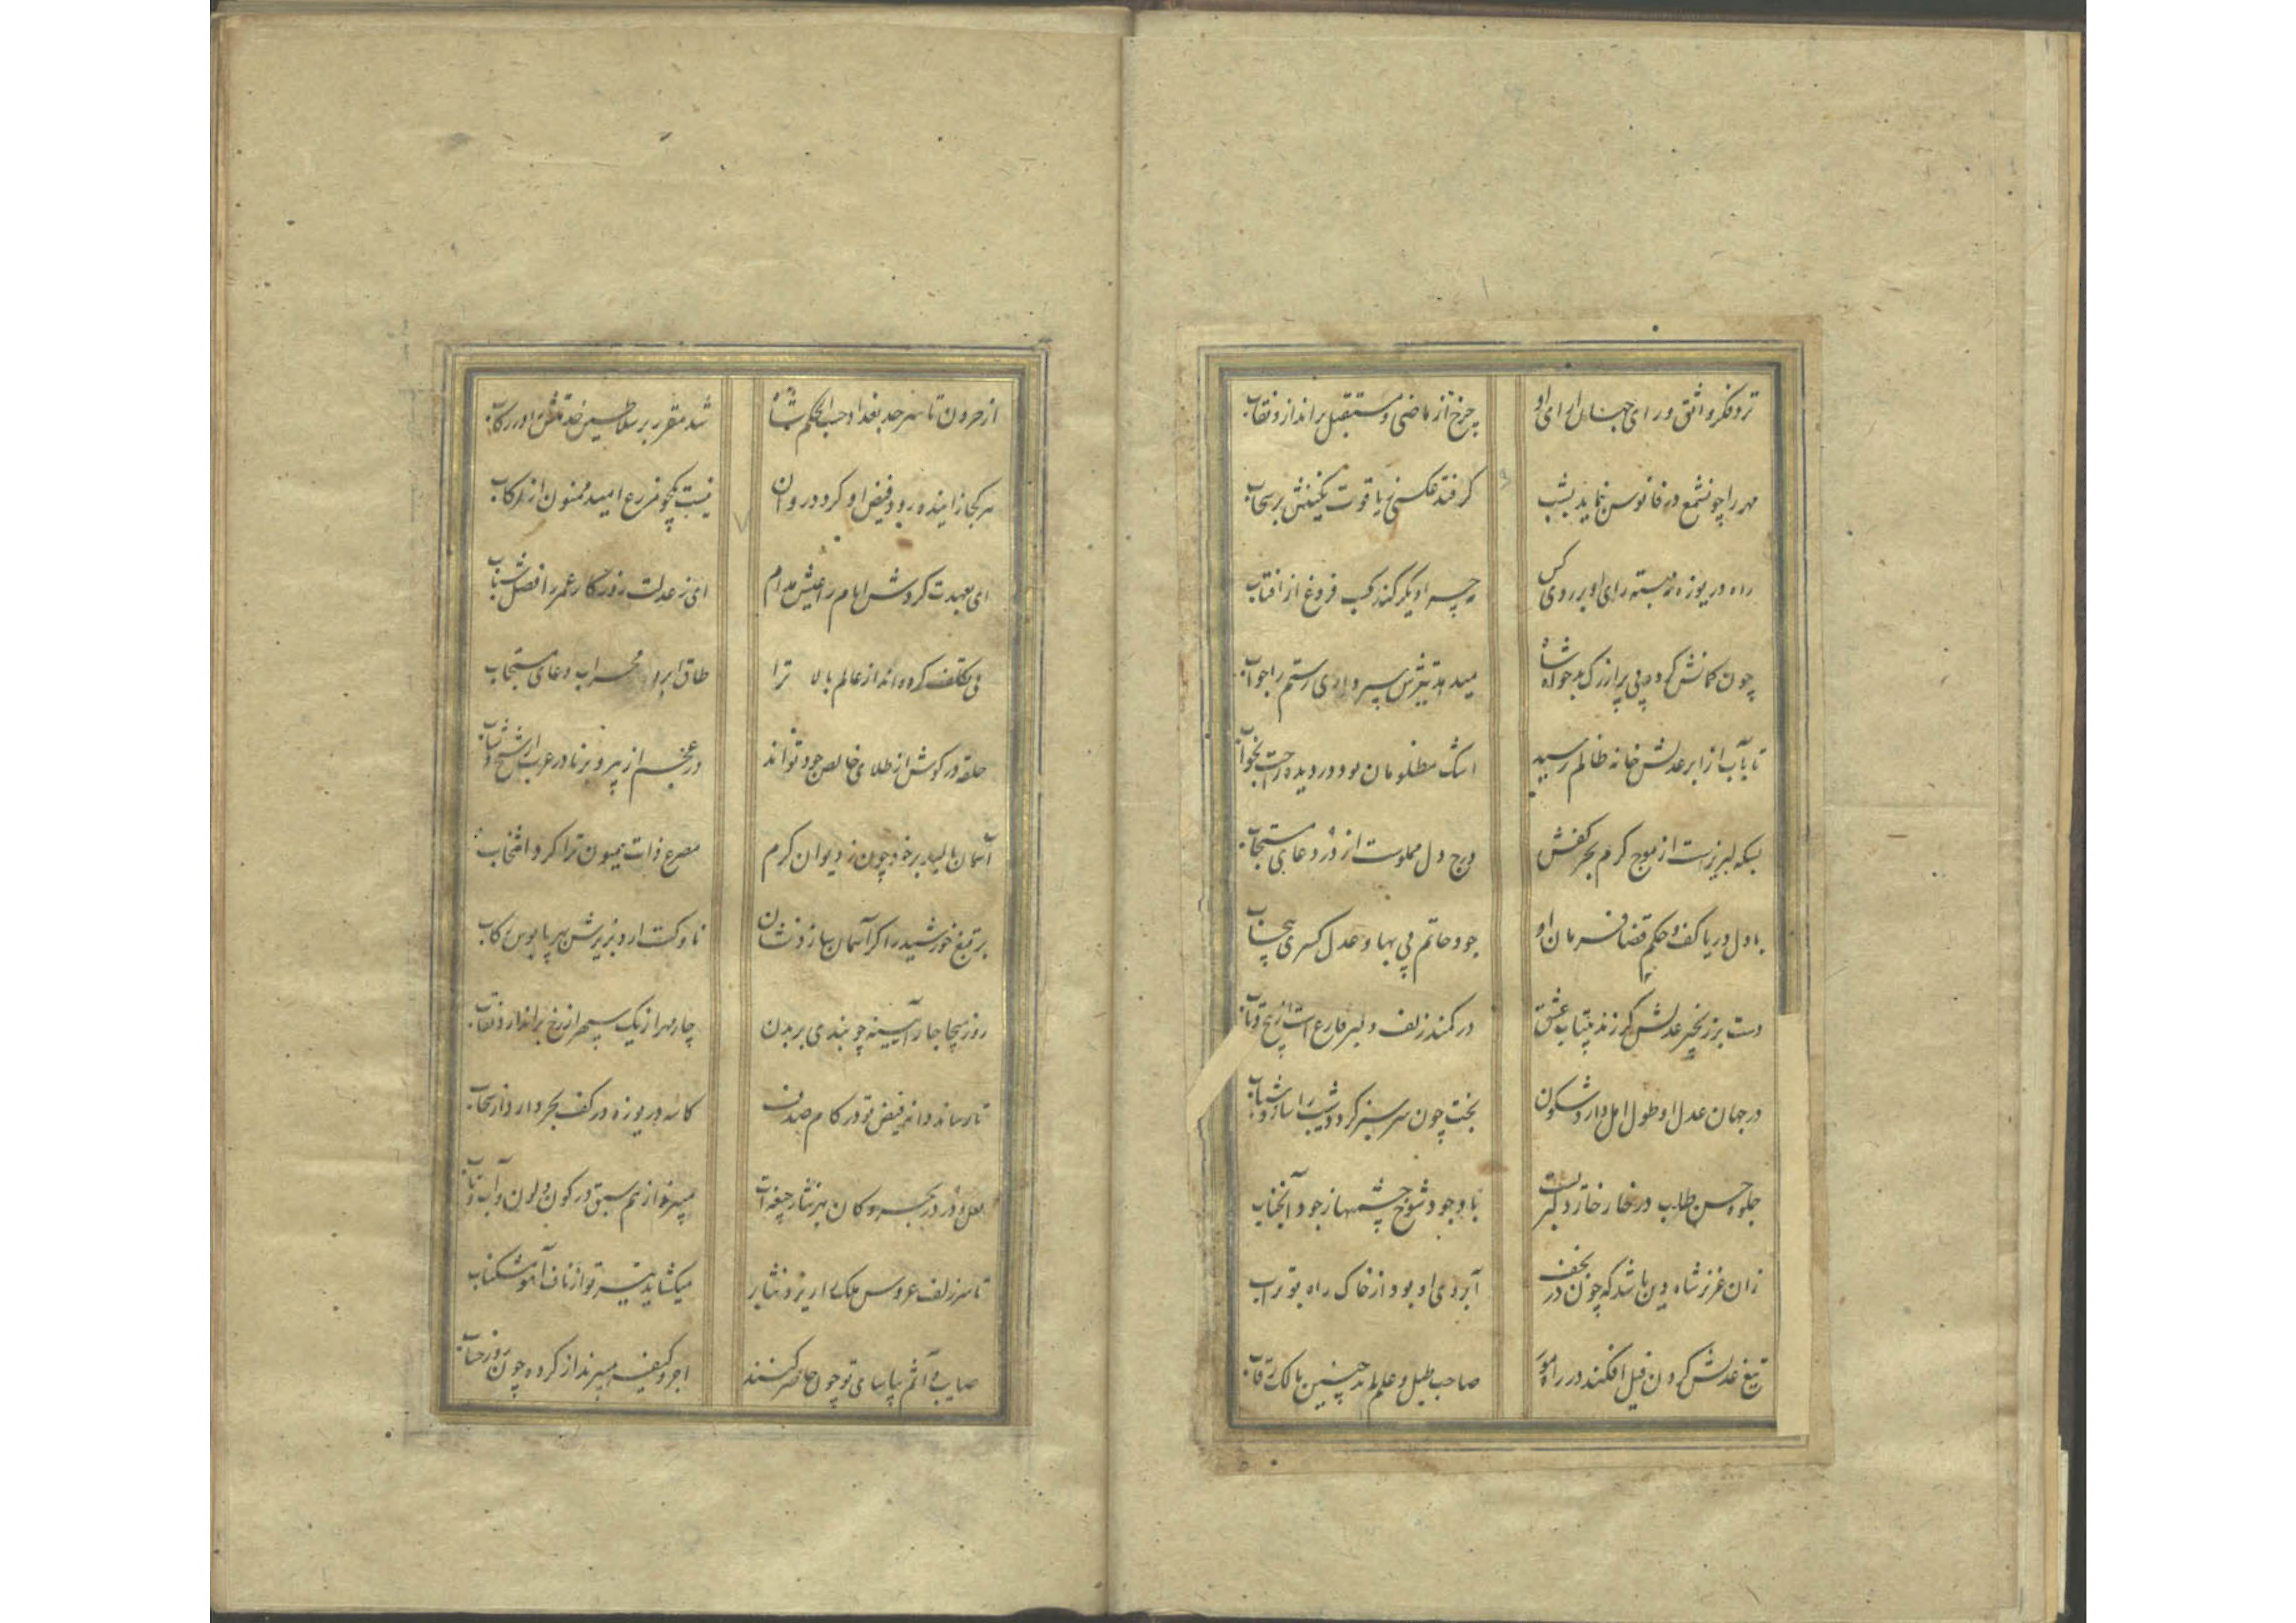 نزد فکر واثق و رای جهان آرای او
چرخ از ماضی و مستقبل براندازد نقاب
مهر را چون شمع در فانوس نماید بشب
کر فتد عکسی ز یاقوت نکینش بر سحاب
راه دریوزه نبسته رای او بر روی کس
چهره دیکر کند کسب فروغ از افتاب
چون کمانش کرد پی پر از رک بدخواه شاه
میدهد تیرش بسر واری رستم را جواب
تا بآب از ابر عدلش خانه ظالم رسید
اشک مظلومان بود در دیده راحت بخواب
بسکه لبریز است از موج کرم بحر کفش
درج دل مملوست از در دعای مستجاب
با دل دریا کف و حکم قضا فرمان او
جود حاتم بی بها و عدل کسری بیحساب
دست بر زنجیر عدلش کر زند بیتاب عشق
در کمند زلف دلبر فارغ است از پیچ و تاب
در جهان عدل او طول امل دارد شکون
بخت چون سرسبز کردد شیب را سازد شباب
جلوه حسن طلب در خار خار دلبریست
با وجود شوخ چشمیها ز جود آنجناب
زان عزیز شاه دین باشد که چون در نجف
آبروی او بود از خاک راه بوتراب
تیغ عدلش کردن فیل افکند در راه مور
صاحب طبل و علم اند چنین مالک رقاب
از حرون تا سرحد بغداد حسب الحکم شاه
شد مقرر بر سلاطین خدمتش در رکاب
هر کجا زاینده رود فیض او کردد روان
نیست همچو مزرع امید ممنون از سحاب
ای بعهدت کردش ایام را عیش مدام
ای ز عدلت روزکار عمر را فصل شباب
بی تکلف کرده اند از عالم بالا ترا
طاق ابرو محراب دعای مستجاب
حلقه در کوش از طلای خالص جود تو اند
در عجم از پیر و برنا در عرب از شیخ و شاب
آسمان بالید بر خود چون ز دیوان کرم
مصرع ذات همیون ترا کرد انتخاب
بر تیغ خورشید را کر آسمان سازد نشان
ناوکت ارد بزیرش بهر پابوس رکاب
روز هیجا چار آیینه چو بندی بر بدن
چار مهر از یک سپهر از رخ براندازد نقاب
تا رساند دانه فیض تو در کام صدف
کاسه دریوزه در کف بحر دارد از سحاب
لعل و در در بحر و کان بهر نثار جیغه ات
میبرند از هم سبق در کون و لون و آب و تاب
تا سر زلف عروس ملک را ریزد نثار
میکشاید تیر تو از ناف آهو مشکناب
صایبی آثم بپاسای تو چون حاضر کنند
اجر و کیفر میبرند از کرده چون روز حساب